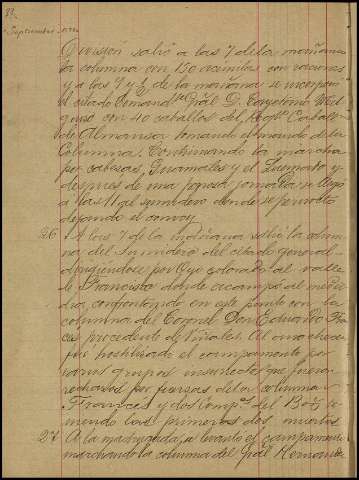 82
Septiembre
División salió a las 7 de la mañana
la columna con 150 acémilas con raciones
y a las 7 y ½ de la mañana se incorporó
el citado Comandte Gral D. Cayetano Mel
guiso con 40 caballos del Regto Caballa
de Almansa tomando el mando de la
Columna. Continuando la marcha
por cabezas, Guamales y el
despues de una penosa jornada se llegó
a las 11 al sumidero donde se pernoctó
dejando el convoy
26 A las 7 de la mañana salió la colum
na del Sumidero del citado General
dirigiendose por Ojo colorado al valle
de Francisco donde acampó al medio
dia, confrontando en este punto con la
columna del Coronel Don Eduardo Fran
ces procedente de Viñales. Al amanecer
fué hostilizado el campamento por
varios grupos insurrectos que fueron
rechazados por fuerzas de la columna
Frances y dos Compas del Bon
niendo las primeras dos muertos
27 A la madrugada, se levantó el campamento
marchando la columna del Gral Hernande